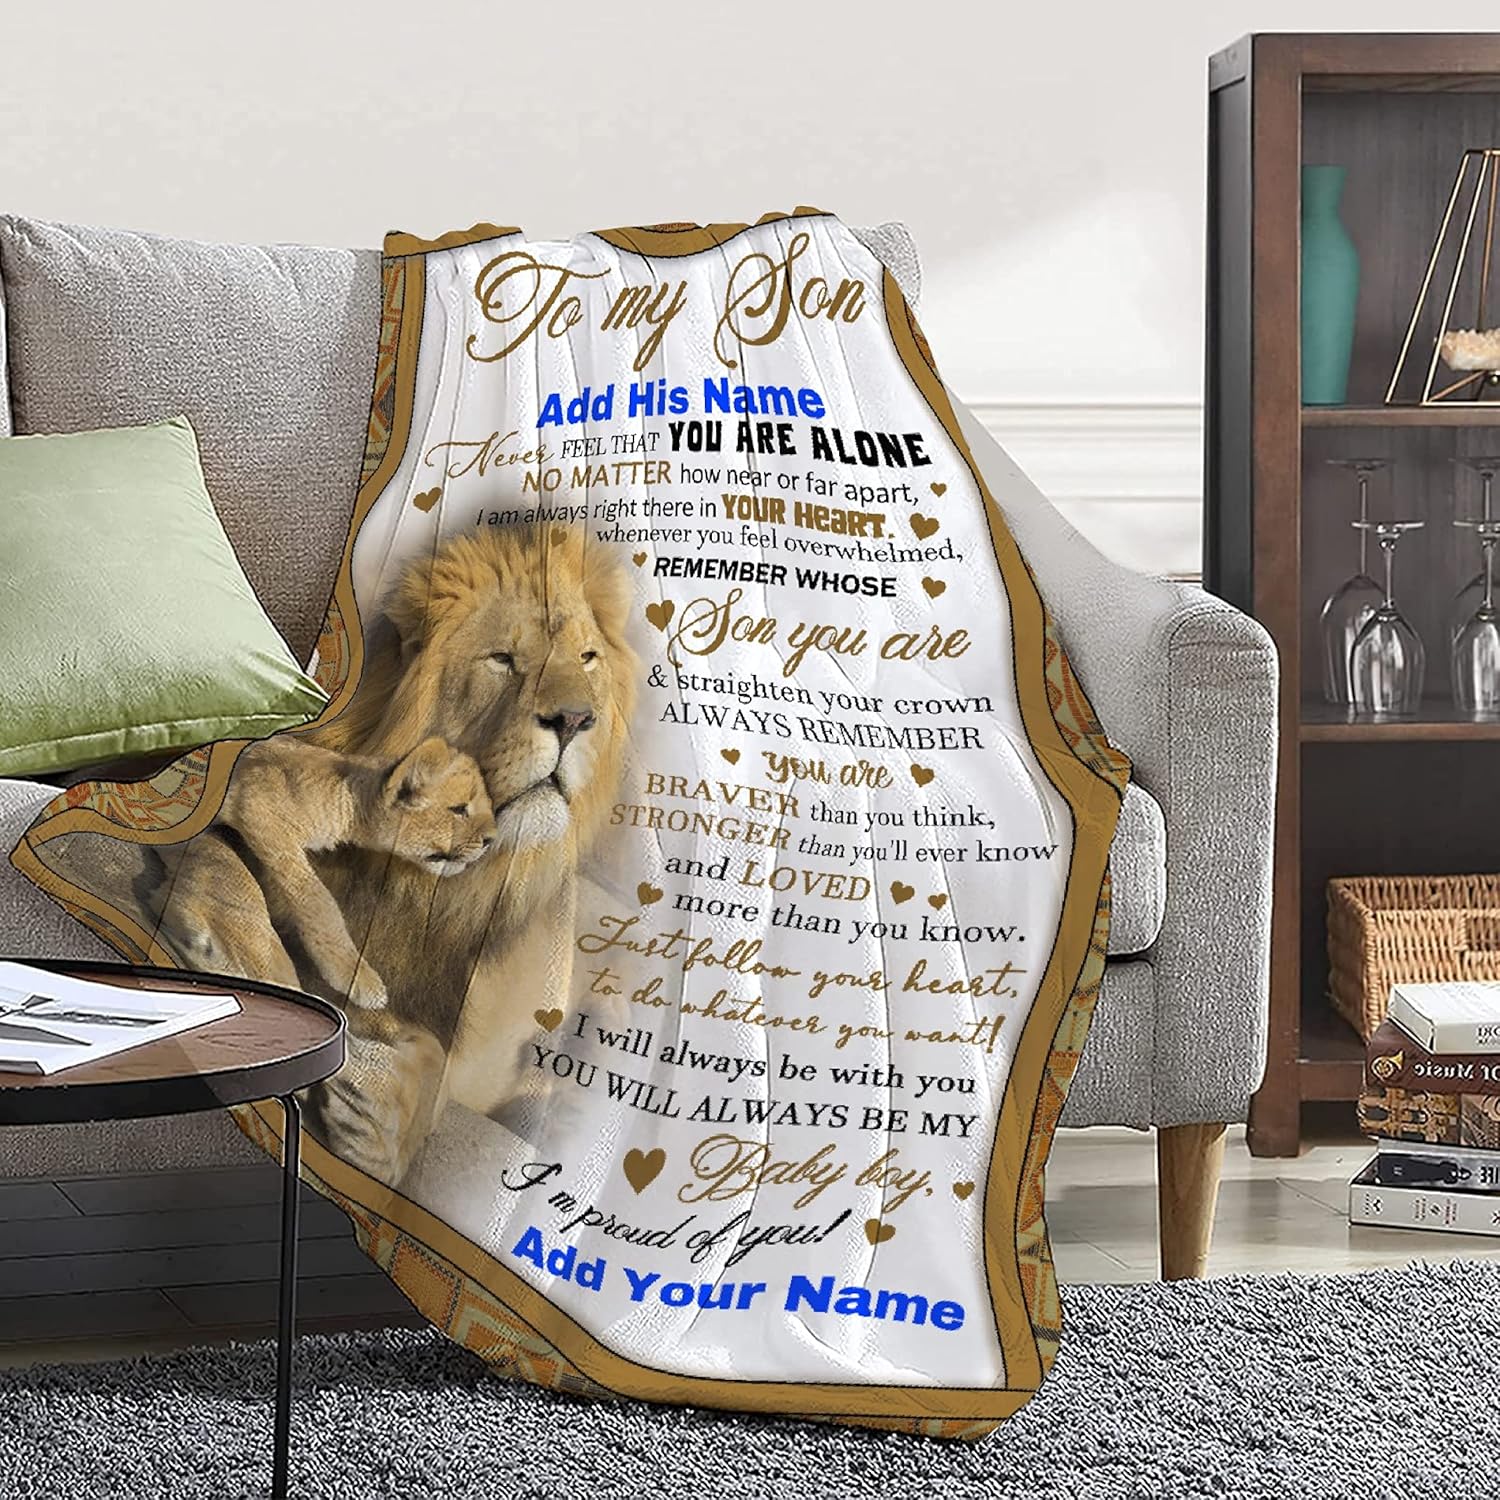 To my Son
Add His Name
Never FEEL THAT YOU ARE ALONE
NO MATTER how near or far apart,
I am always right there in YOUR HEART.
whenever you feel overwhelmed,
REMEMBER WHOSE
Son you are
& straighten your crown
ALWAYS REMEMBER
you are
BRAVER than you think,
STRONGER than you'll ever know
and LOVED
more than you know.
Just follow your heart,
to do whatever you want!
I will always be with you
YOU WILL ALWAYS BE MY
Baby boy,
I'm proud of you!
Add Your Name